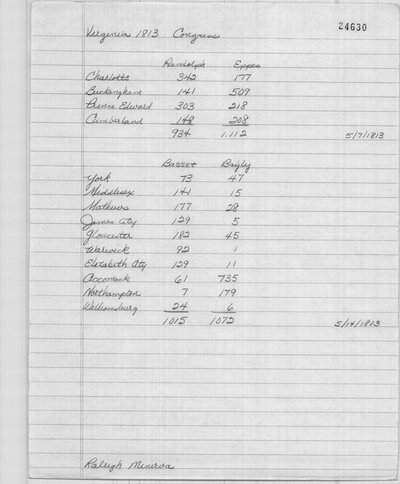 24630
Virginia 1813 Congress
Randolph Eppes
Charlotte 342 177
Buckingham 141 509
Prince Edward 303 218
Cumberland 148 208
934 1.112 5/7/1813
Bassett Bayly
York 73 47
Middlesex 141 15
Mathews 177 28
James City 129 5
Gloucester 182 45
Warwick 92 1
Elizabeth City 129 11
Accomack 61 735
Northampton 7 179
Williamsburg 24 6
1015 1072 5/14/1813
Raleigh Minerva